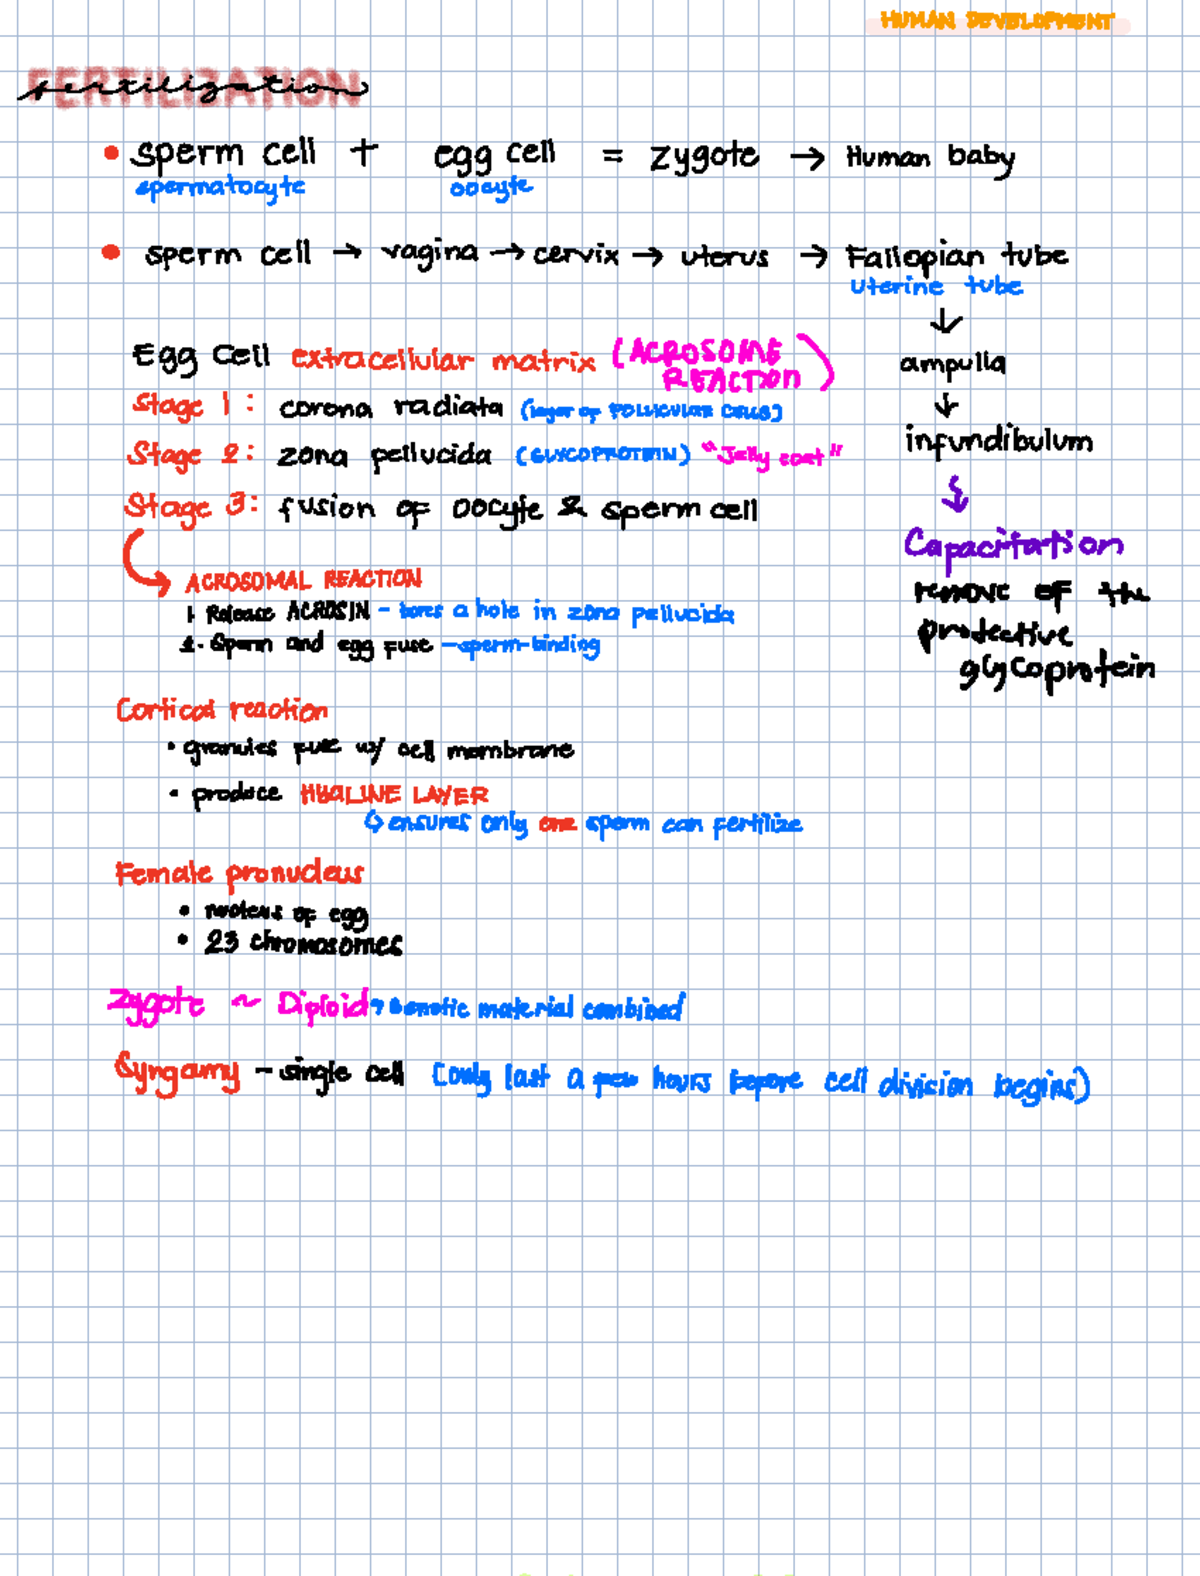 HUMAN DEVELOPMENT
FERTILIZATION
fertilization
• sperm cell + egg cell = zygote → Human baby
spermatocyte oocyte
• sperm cell → vagina → cervix → uterus → Fallopian tube
uterine tube
↓
ampulla
↓
infundibulum
↓
Capacitation
remove of the
protective
glycoprotein
Egg Cell extracellular matrix (ACROSOME
REACTION)
Stage 1: corona radiata (layer of FOLLICULAR CELLS)
Stage 2: zona pellucida (GLYCOPROTEIN) "Jelly coat"
Stage 3: fusion of oocyte & sperm cell
ACROSOMAL REACTION
1. Release ACROSIN - bores a hole in zona pellucida
2. Sperm and egg fuse - sperm-binding
Cortical reaction
• granules fuse w/ cell membrane
• produce HYALINE LAYER
↳ ensures only one sperm can fertilize
Female pronucleus
• nucleus of egg
• 23 chromosomes
Zygote ~ Diploid → Genetic material combined
Syngamy - single cell (only last a few hours before cell division begins)